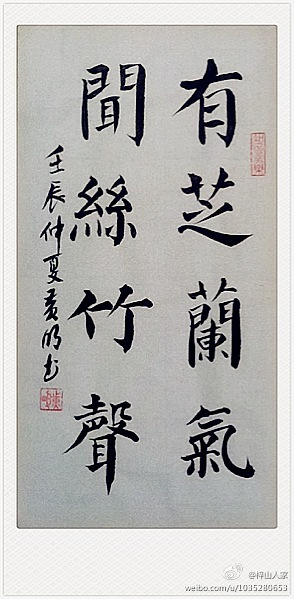 有芝蘭氣
聞絲竹聲
壬辰仲夏黃明书
@梓山人家
weibo.com/u/1035280653